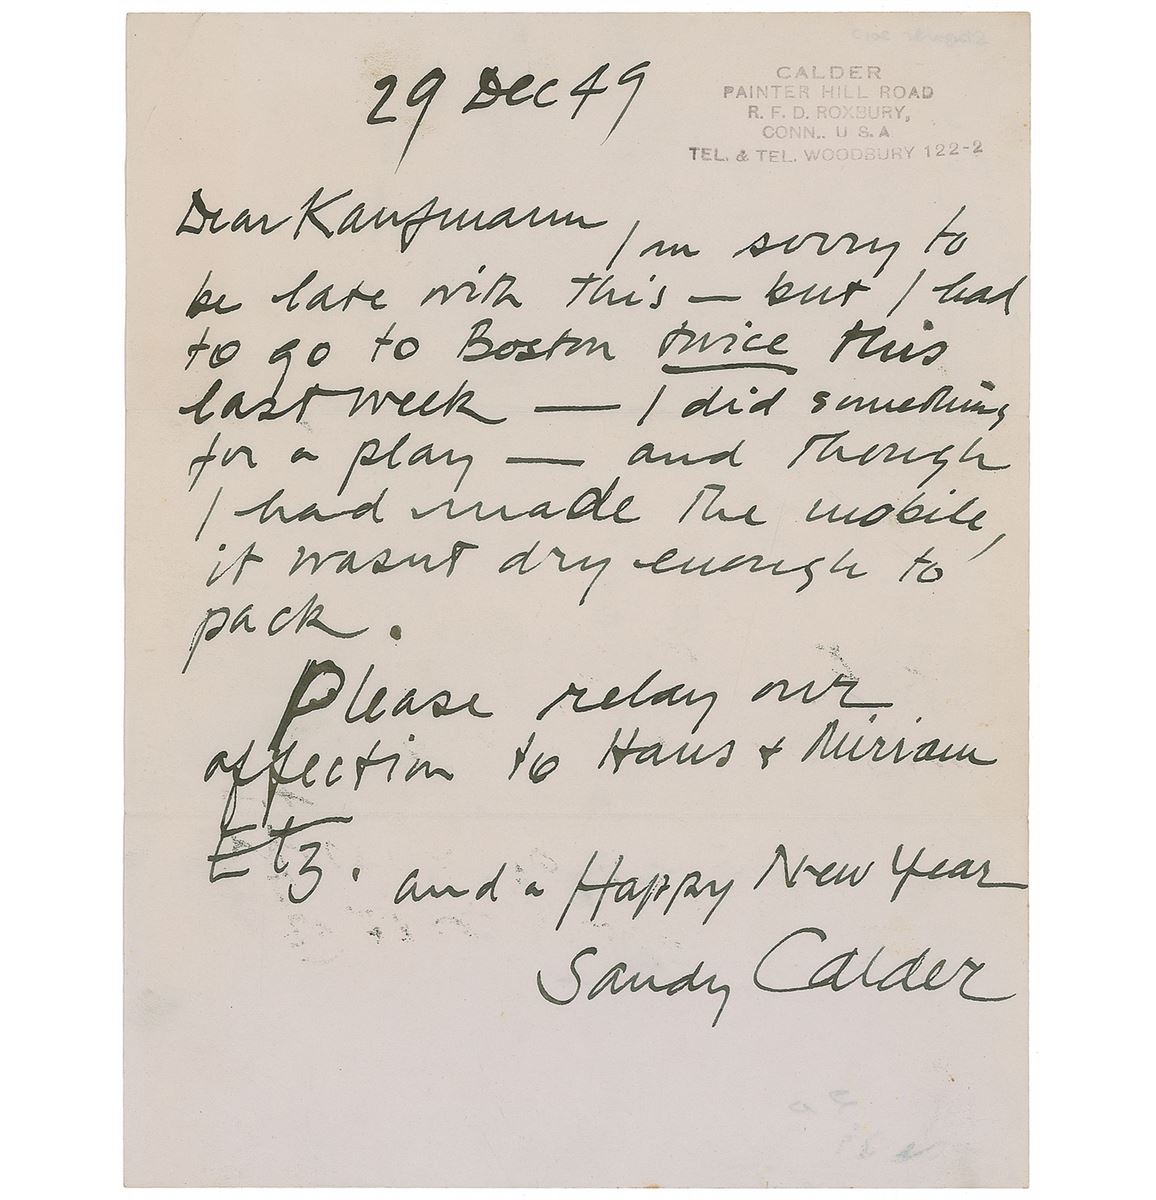 29 Dec 49
CALDER
PAINTER HILL ROAD
R. F. D. ROXBURY,
CONN.. U S. A
TEL. & TEL. WOODBURY 122-2
Dear Kaufmann I'm sorry to
be late with this — but I had
to go to Boston twice this
last week — I did something
for a play — and though
I had made the mobile,
it wasnt dry enough to
pack.
Please relay our
affection to Hans + Miriam
Etz. and a Happy New Year
Sandy Calder